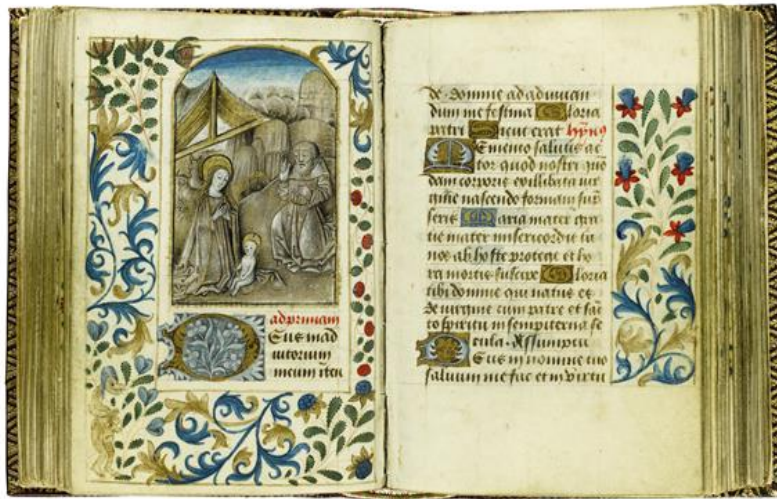 ad primam
Deus in ad
iutorium
meum inten
de. Domine ad adiuvan
dum me festina Gloria
patri Sicut erat hympnus
Memento salutis auc
tor quod nostri quon
dam corporis ex illibata vir
gine nascendo formam sump
seris Maria mater gra
tie mater misericordie tu
nos ab hoste protege et ho
ra mortis suscipe Gloria
tibi domine qui natus es
de virgine cum patre et sanc
to spiritu in sempiterna se
cula. Assumpta
Deus in nomine tuo
salvum me fac et in virtu